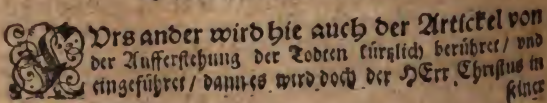 VOrs ander wird hie auch der Artickel von
der Aufferstehung der Todten kürtzlich berühret / vnd
eingeführet / dann es wird doch der HErr Christus in
seiner